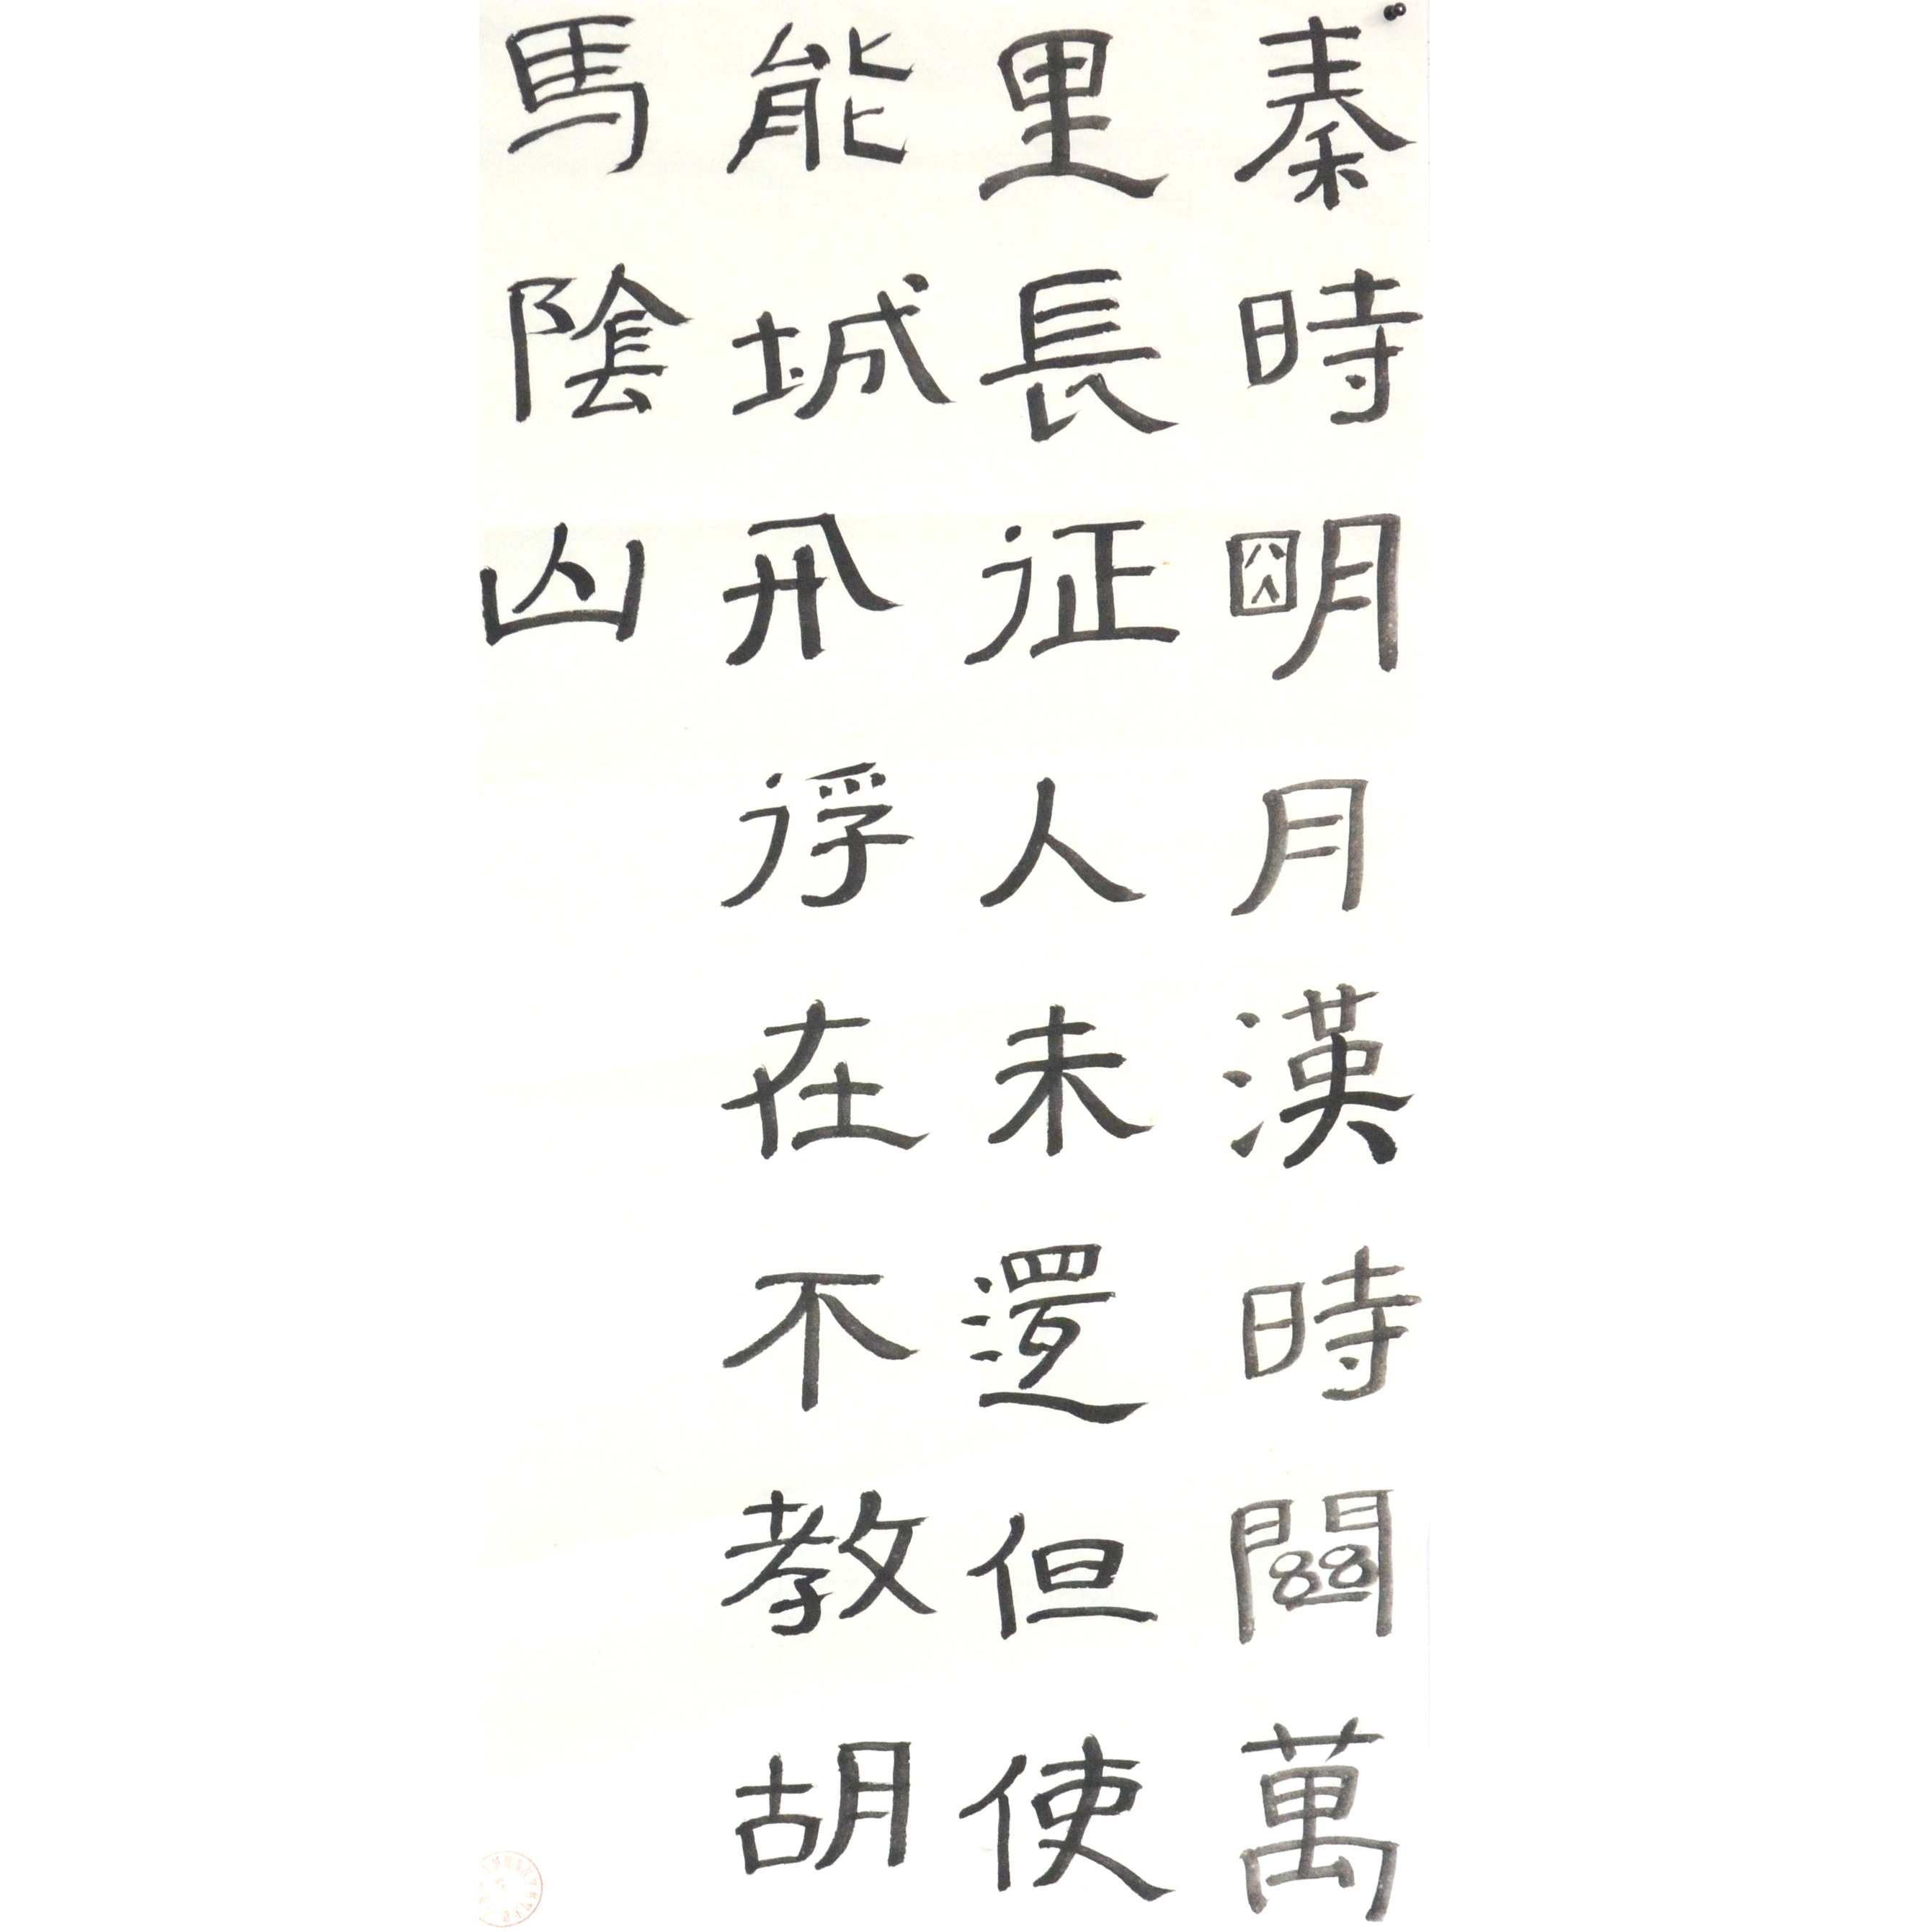 秦時明月漢時關萬
里長征人未還但使
能城飛將在不教胡
馬陰山